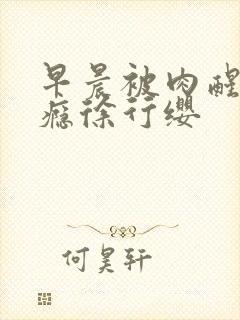 早晨被肉醒
瘾徐行缨
何昊轩